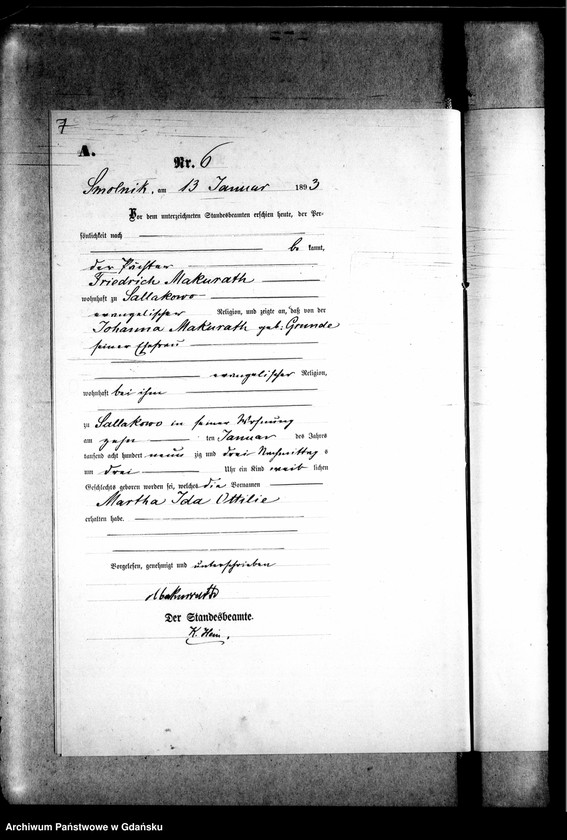 7
A.
Nr. 6
Smolnik, am 13 Januar 1893
Vor dem unterzeichneten Standesbeamten erschien heute, der Per-
sönlichkeit nach
be kannt,
der Pächter
Friedrich Makurath
wohnhaft zu Sallakowo
evangelischer Religion, und zeigte an, daß von der
Johanna Makurath geb: Grunde
seiner Ehefrau
evangelischer Religion,
wohnhaft bei ihm
zu Sallakowo in seiner Wohnung
am zehn ten Januar des Jahres
tausend acht hundert neun zig und drei Nachmittag s
um drei Uhr ein Kind weib lichen
Geschlechts geboren worden sei, welches die Vornamen
Martha Ida Ottilie
erhalten habe.
Vorgelesen, genehmigt und unterschrieben
Makurath
Der Standesbeamte.
K. Hein.
Archiwum Państwowe w Gdańsku